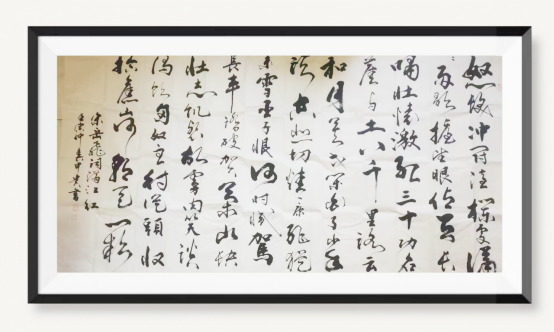 怒发冲冠凭栏處潇
雨歇抬望眼仰天长
嘯壮懷激烈三十功名
塵与土八千里路云
和月莫等闲白了少年
头空悲切靖康耻犹
未雪臣子恨何时灭驾
長車踏破贺兰山缺
壮志饥餐胡虏肉笑谈
渴饮匈奴血待從頭收
拾舊山河朝天阙
宋岳飛词满江红
書